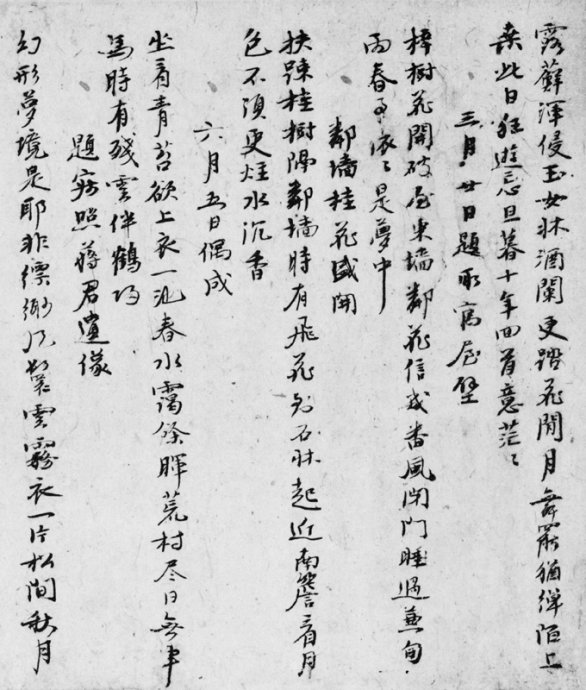 露蘚渾侵玉女牀酒闌更踏花間月舞罷猶彈陌上
桒此日狂遊忘旦暮十年回首意茫〻
三月廿日題所寓屋壁
梓樹花開破屋東墻鄰花信幾番風閉門睡過兼旬
雨春事依〻是夢中
鄰墻桂花盛開
扶疎桂樹隔鄰墻時有飛花到石牀起近南簷看月
色不須更炷水沉香
六月五日偶成
坐看青苔欲上衣一池春水靄餘暉荒村尽日無車
馬時有殘雲伴鶴歸
題寂照蔣君遺像
幻形夢境是耶非縹緲風鬟雲霧衣一片松間秋月